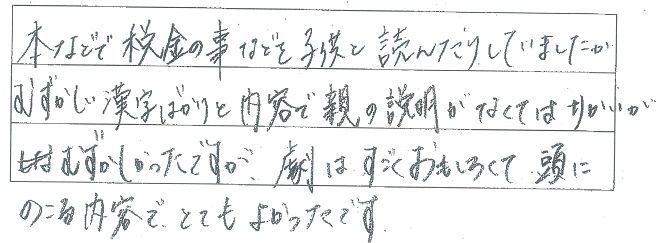 本などで税金の事などを子供と読んだりしていましたが
むずかしい漢字ばかりと内容で親の説明がなくてはりかいが
むずかしかったですが、劇はすごくおもしろくて頭に
のこる内容で、とてもよかったです